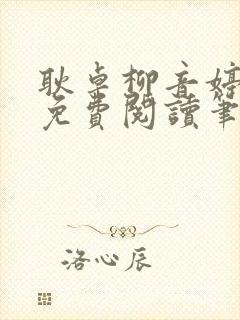 耿卓柳音婷
免費閱讀筆
洛心辰